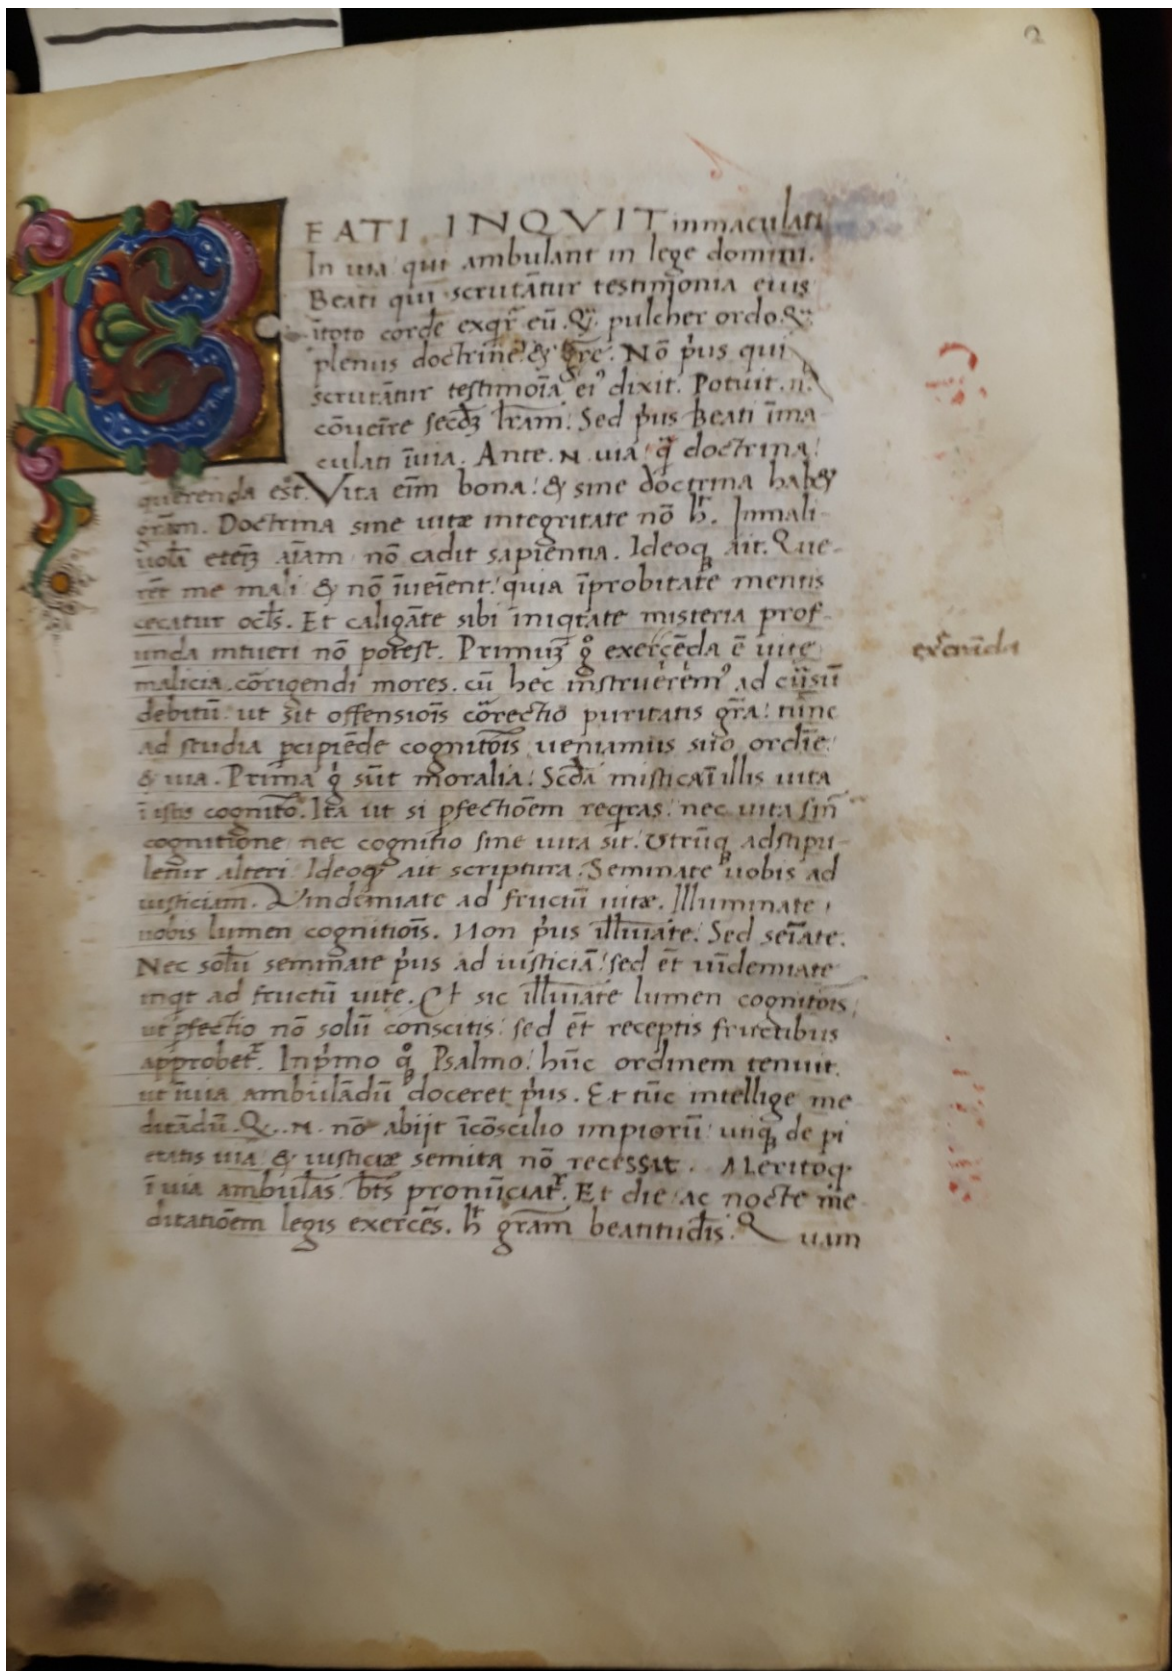 2
BEATI . INQVIT inmaculati
In uia qui ambulant in lege domini.
Beati qui scrutātur testimonia eius
ītoto corde exqr̄ eū. Q̄ pulcher ordo. Q̄
plenus doctrine! & gr̄e. Nō pʹus qui
scrutātur testimoīa eiꝰ dixit. Potuit .n.
cōueīre secdʒ lr̄am! Sed pʹus Beati īma
culati īuia. Ante .N. uia! q̄ doctrina!
querenda est. Vita eīm bona! & sine doctrina hab&
grām. Doctrina sine uitæ integritate nō h̄t. Inmali-
uolā etenʒ aīam nō cadit sapientia. Ideoqꝫ ait. Que-
rēt me mali & nō īueīent! quia īprobitate mentis
cecatur ocl̄s. Et caligāte sibi iniqtate misteria prof-
unda intueri nō potest. Primuʒ gͦ exercēda ē uite
exʹcinīda
malicia. cōrigendi mores. cū hec instruerēmꝰ ad cursū
debitū! ut sit offensioīs cōrectio puritatis gr̄a! tūnc
ad studia pcipiēde cognitōīs ueniamus suo ordīe!
& uia. Prima gͦ sūt moralia! Scd̄a misticaī illis uita
ī istis cognitō. Ita ut si pfectiōem reqras! nec uita sin̄
cognitione nec cognitio sine uita sit! Vtrūqꝫ adstipu-
letur alteri! Ideoqꝫ ait scriptura! Seminate uobis ad
iusticiam. Vindemiate ad fructū uitæ. Illuminate
uobis lumen cognitioīs. Non pʹus illūiate! Sed seīate.
Nec solū seminate pʹus ad iusticiā! sed ēt uīdemiate
inqt ad fructū uite. Et sic illūiate lumen cognitōis!
ut pfectio nō solū conscitis! sed ēt receptis fructibus
approbet᷑. Inpʹmo gͦ Psalmo! hūc ordinem tenuit.
ut īuia ambulādū doceret pʹus. Et tūc intellige me
ditādū. Q. .N. nō abijt īcōscilio impiorū! utiqꝫ de pi
etatis uia & iusticiæ semita nō recessit. Meritoqꝫ
ī uia ambulās! bt̄s pronūciat᷑. Et die ac nocte me-
ditatiōem legis exercēs. h̄t grām beatitudīs! Quam